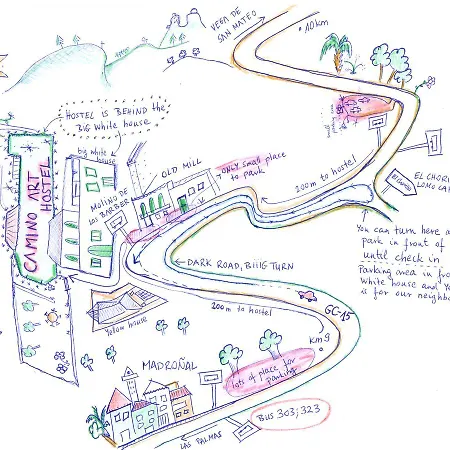 VEGA DE
SAN MATEO
10 km
HOSTEL IS BEHIND the
BIG white house
big white
house
OLD MILL
ONLY small place
to park
MOLINO DE
LOS BARBER
CAMINO ART
HOSTEL
200m to hostel
EL CHORI
LOMO CA
You can turn here a
park in front of
until check in
Parking area in fro
White house and Ye
is for our neighb
DARK ROAD, BIIIG TURN
Yelow house
200m to hostel
GC-15
km 9
MADROÑAL
lots of place for
parking
BUS 303; 323
LAS PALMAS